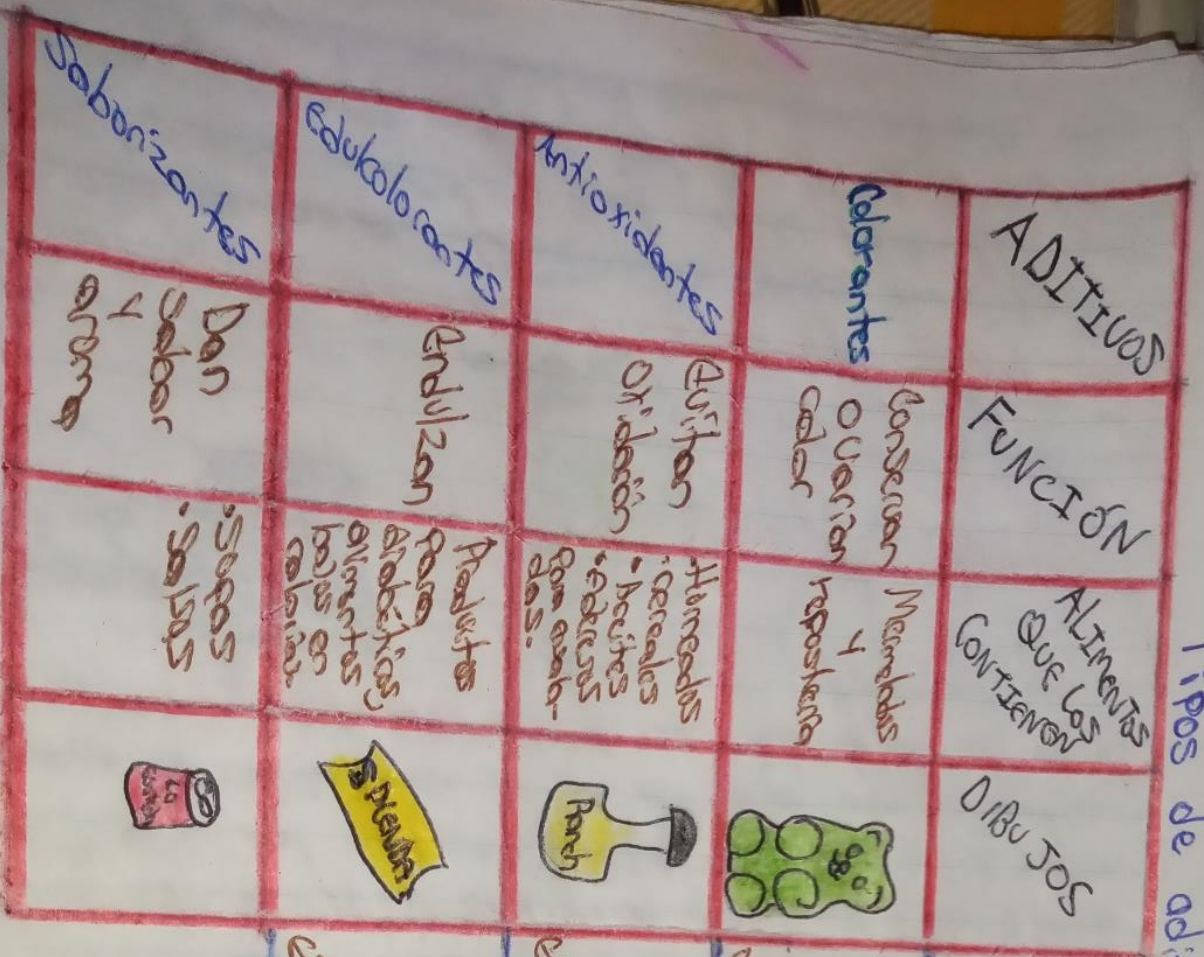 Tipos de adi
ADITIVOS
FUNCIÓN
ALIMENTOS
QUE LOS
CONTIENEN
DIBUJOS
Colorantes
Conservan
o varian
color
Mermeladas
y
repostería
Antioxidantes
Evitan
oxidación
•Horneados
•cereales
•Aceites
•Aderezos
para ensala-
das.
Edulcolorantes
Endulzan
Productos
para
diabéticos y
alimentos
bajos en
calorías
Saborizantes
Dan
sabor
y
aroma
•Sopas
•Salsas
Ranch
SPLENDA
La